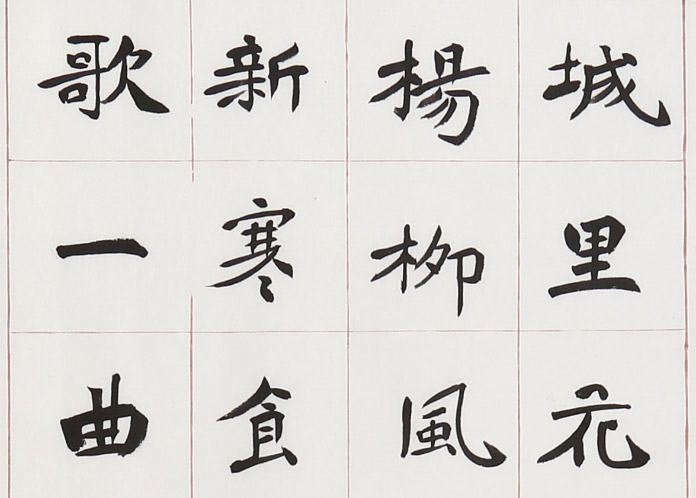 城里花
楊柳風
新寒食
歌一曲